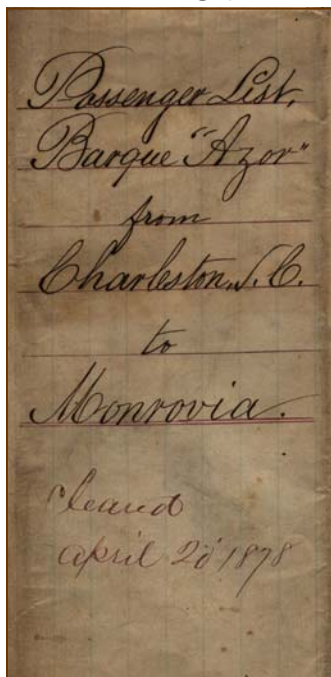 Passenger List,
Barque "Azor"
from
Charleston, S.C.
to
Monrovia.
cleared
april 20 1878